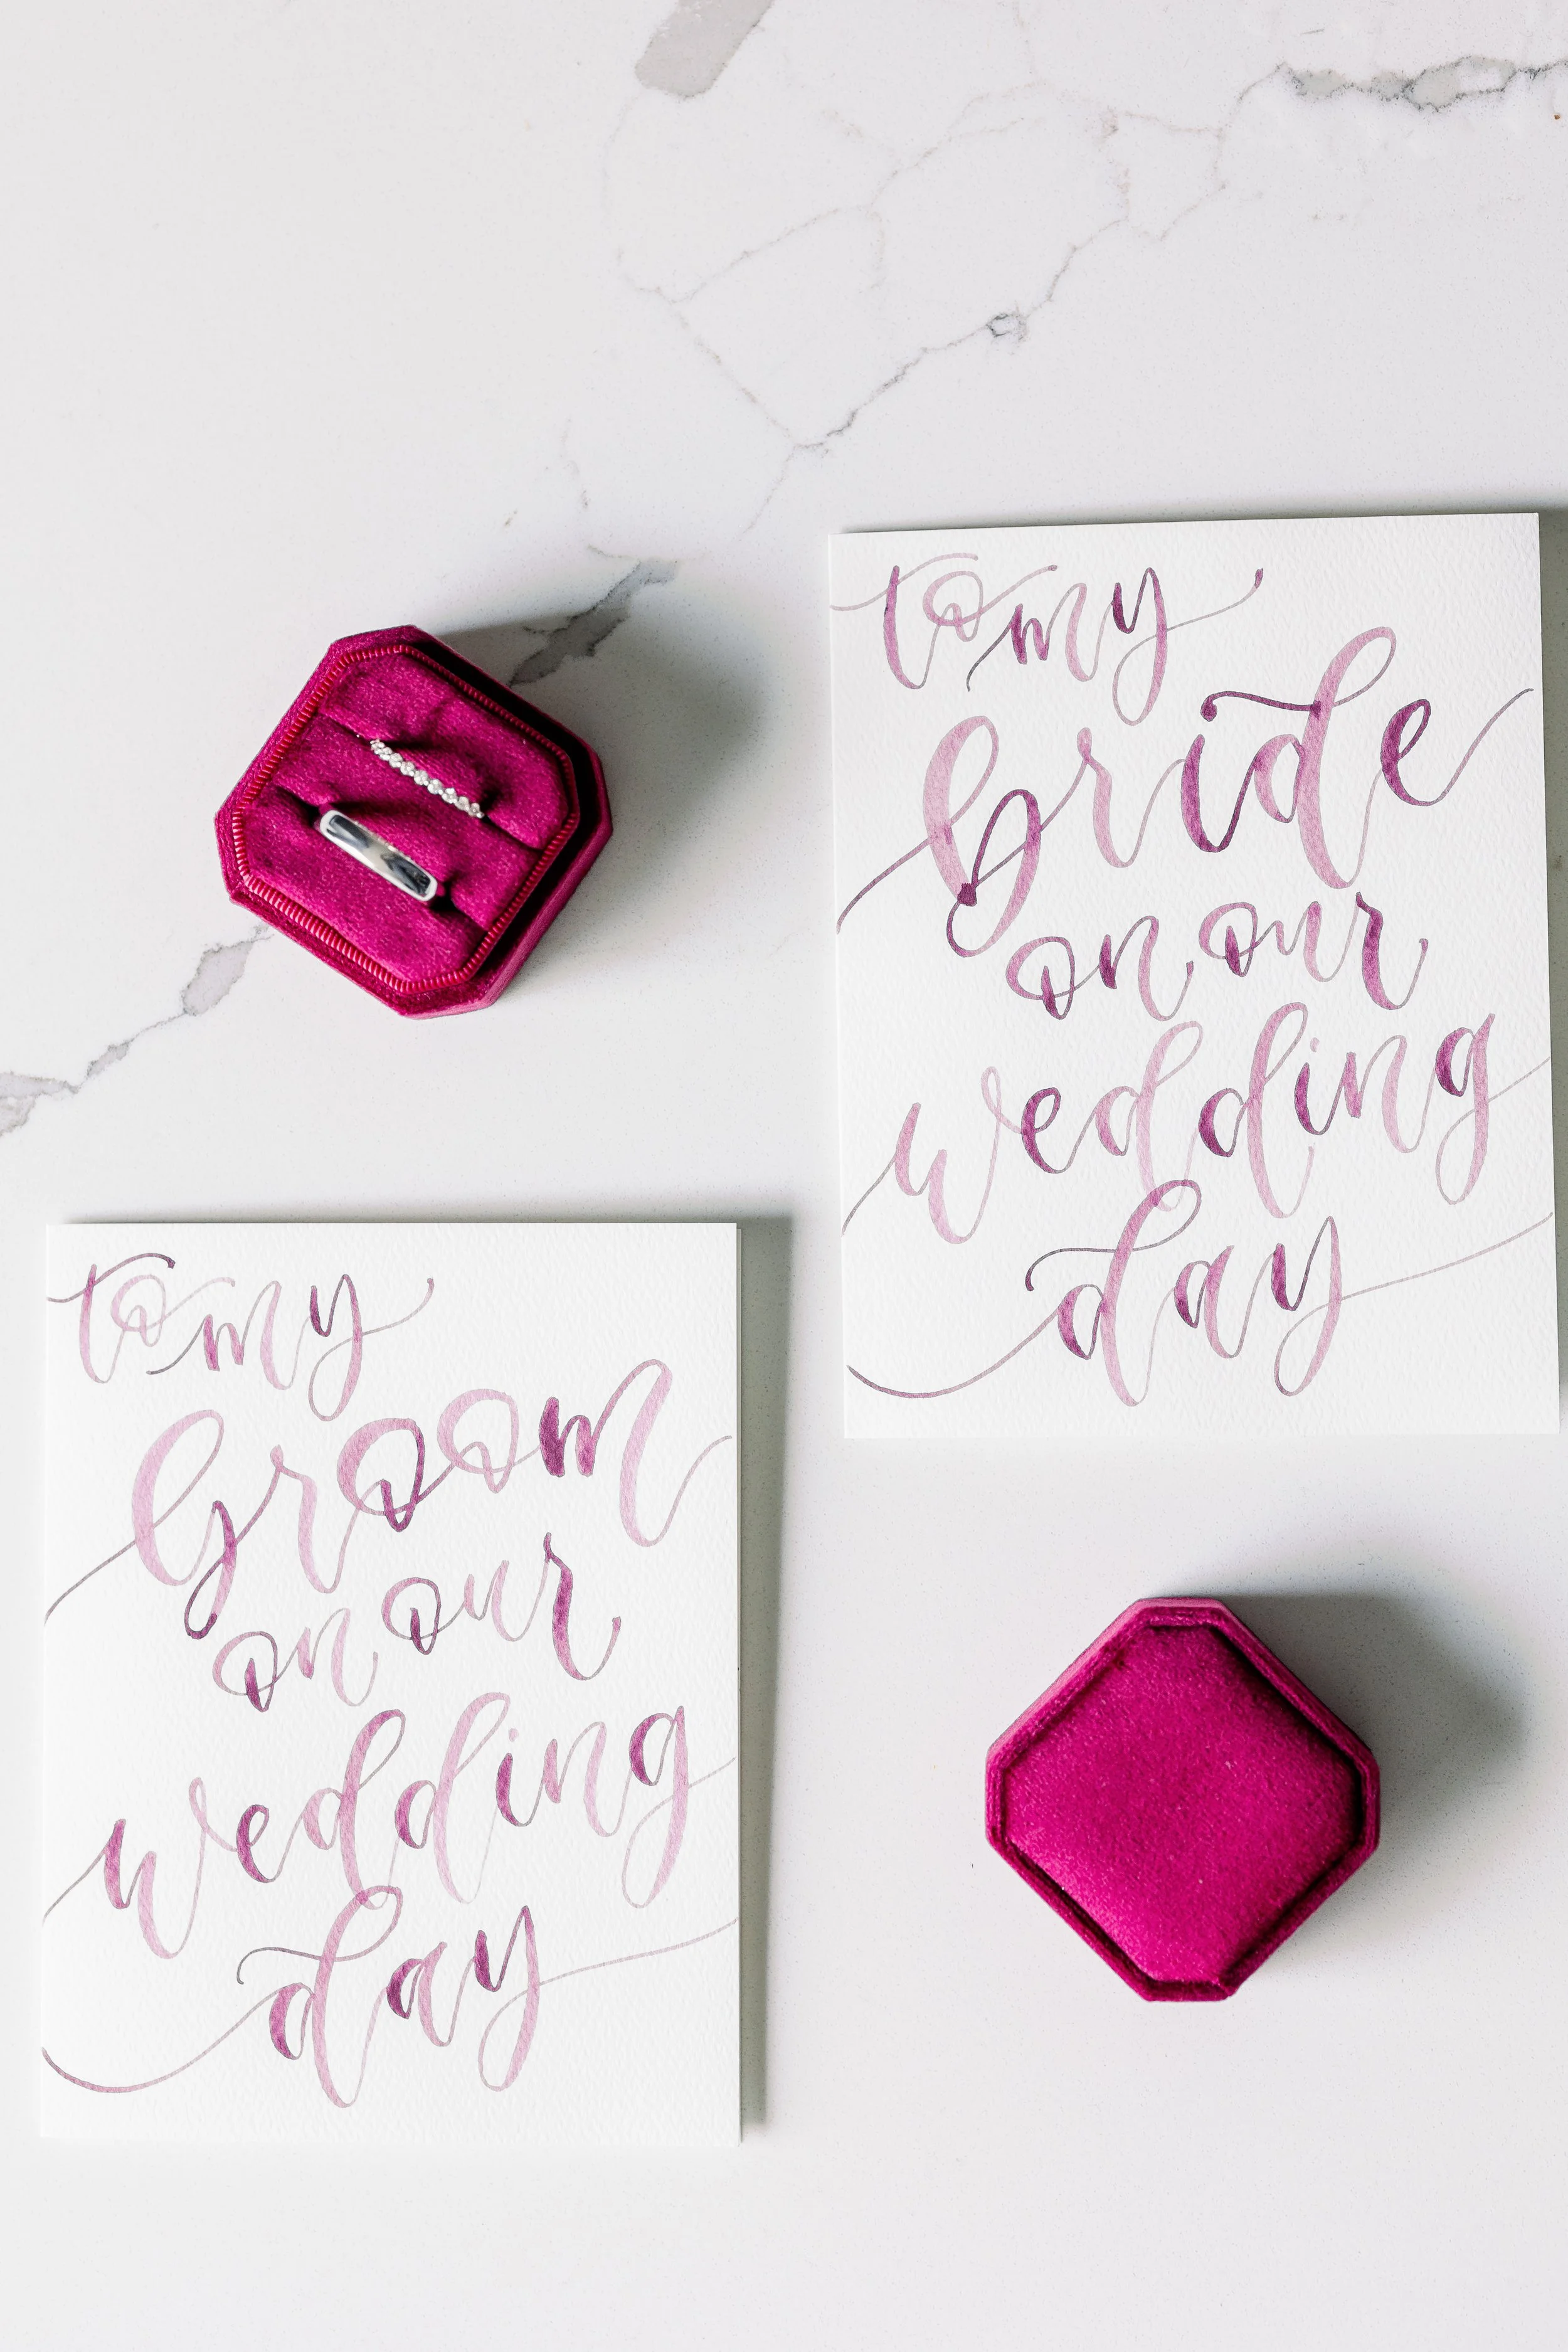 to my
bride
on our
wedding
day
to my
Groom
on our
wedding
day